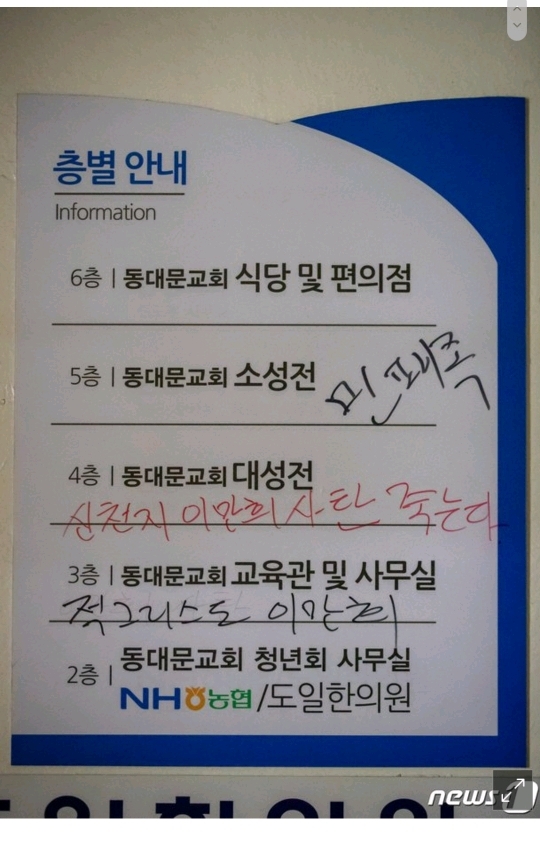 층별 안내
Information
6층 | 동대문교회 식당 및 편의점
5층 | 동대문교회 소성전
민폐족
4층 | 동대문교회 대성전
신천지 이만희 사탄 죽는다
3층 | 동대문교회 교육관 및 사무실
적그리스도 이만희
2층 | 동대문교회 청년회 사무실
NH농협/도일한의원
news1